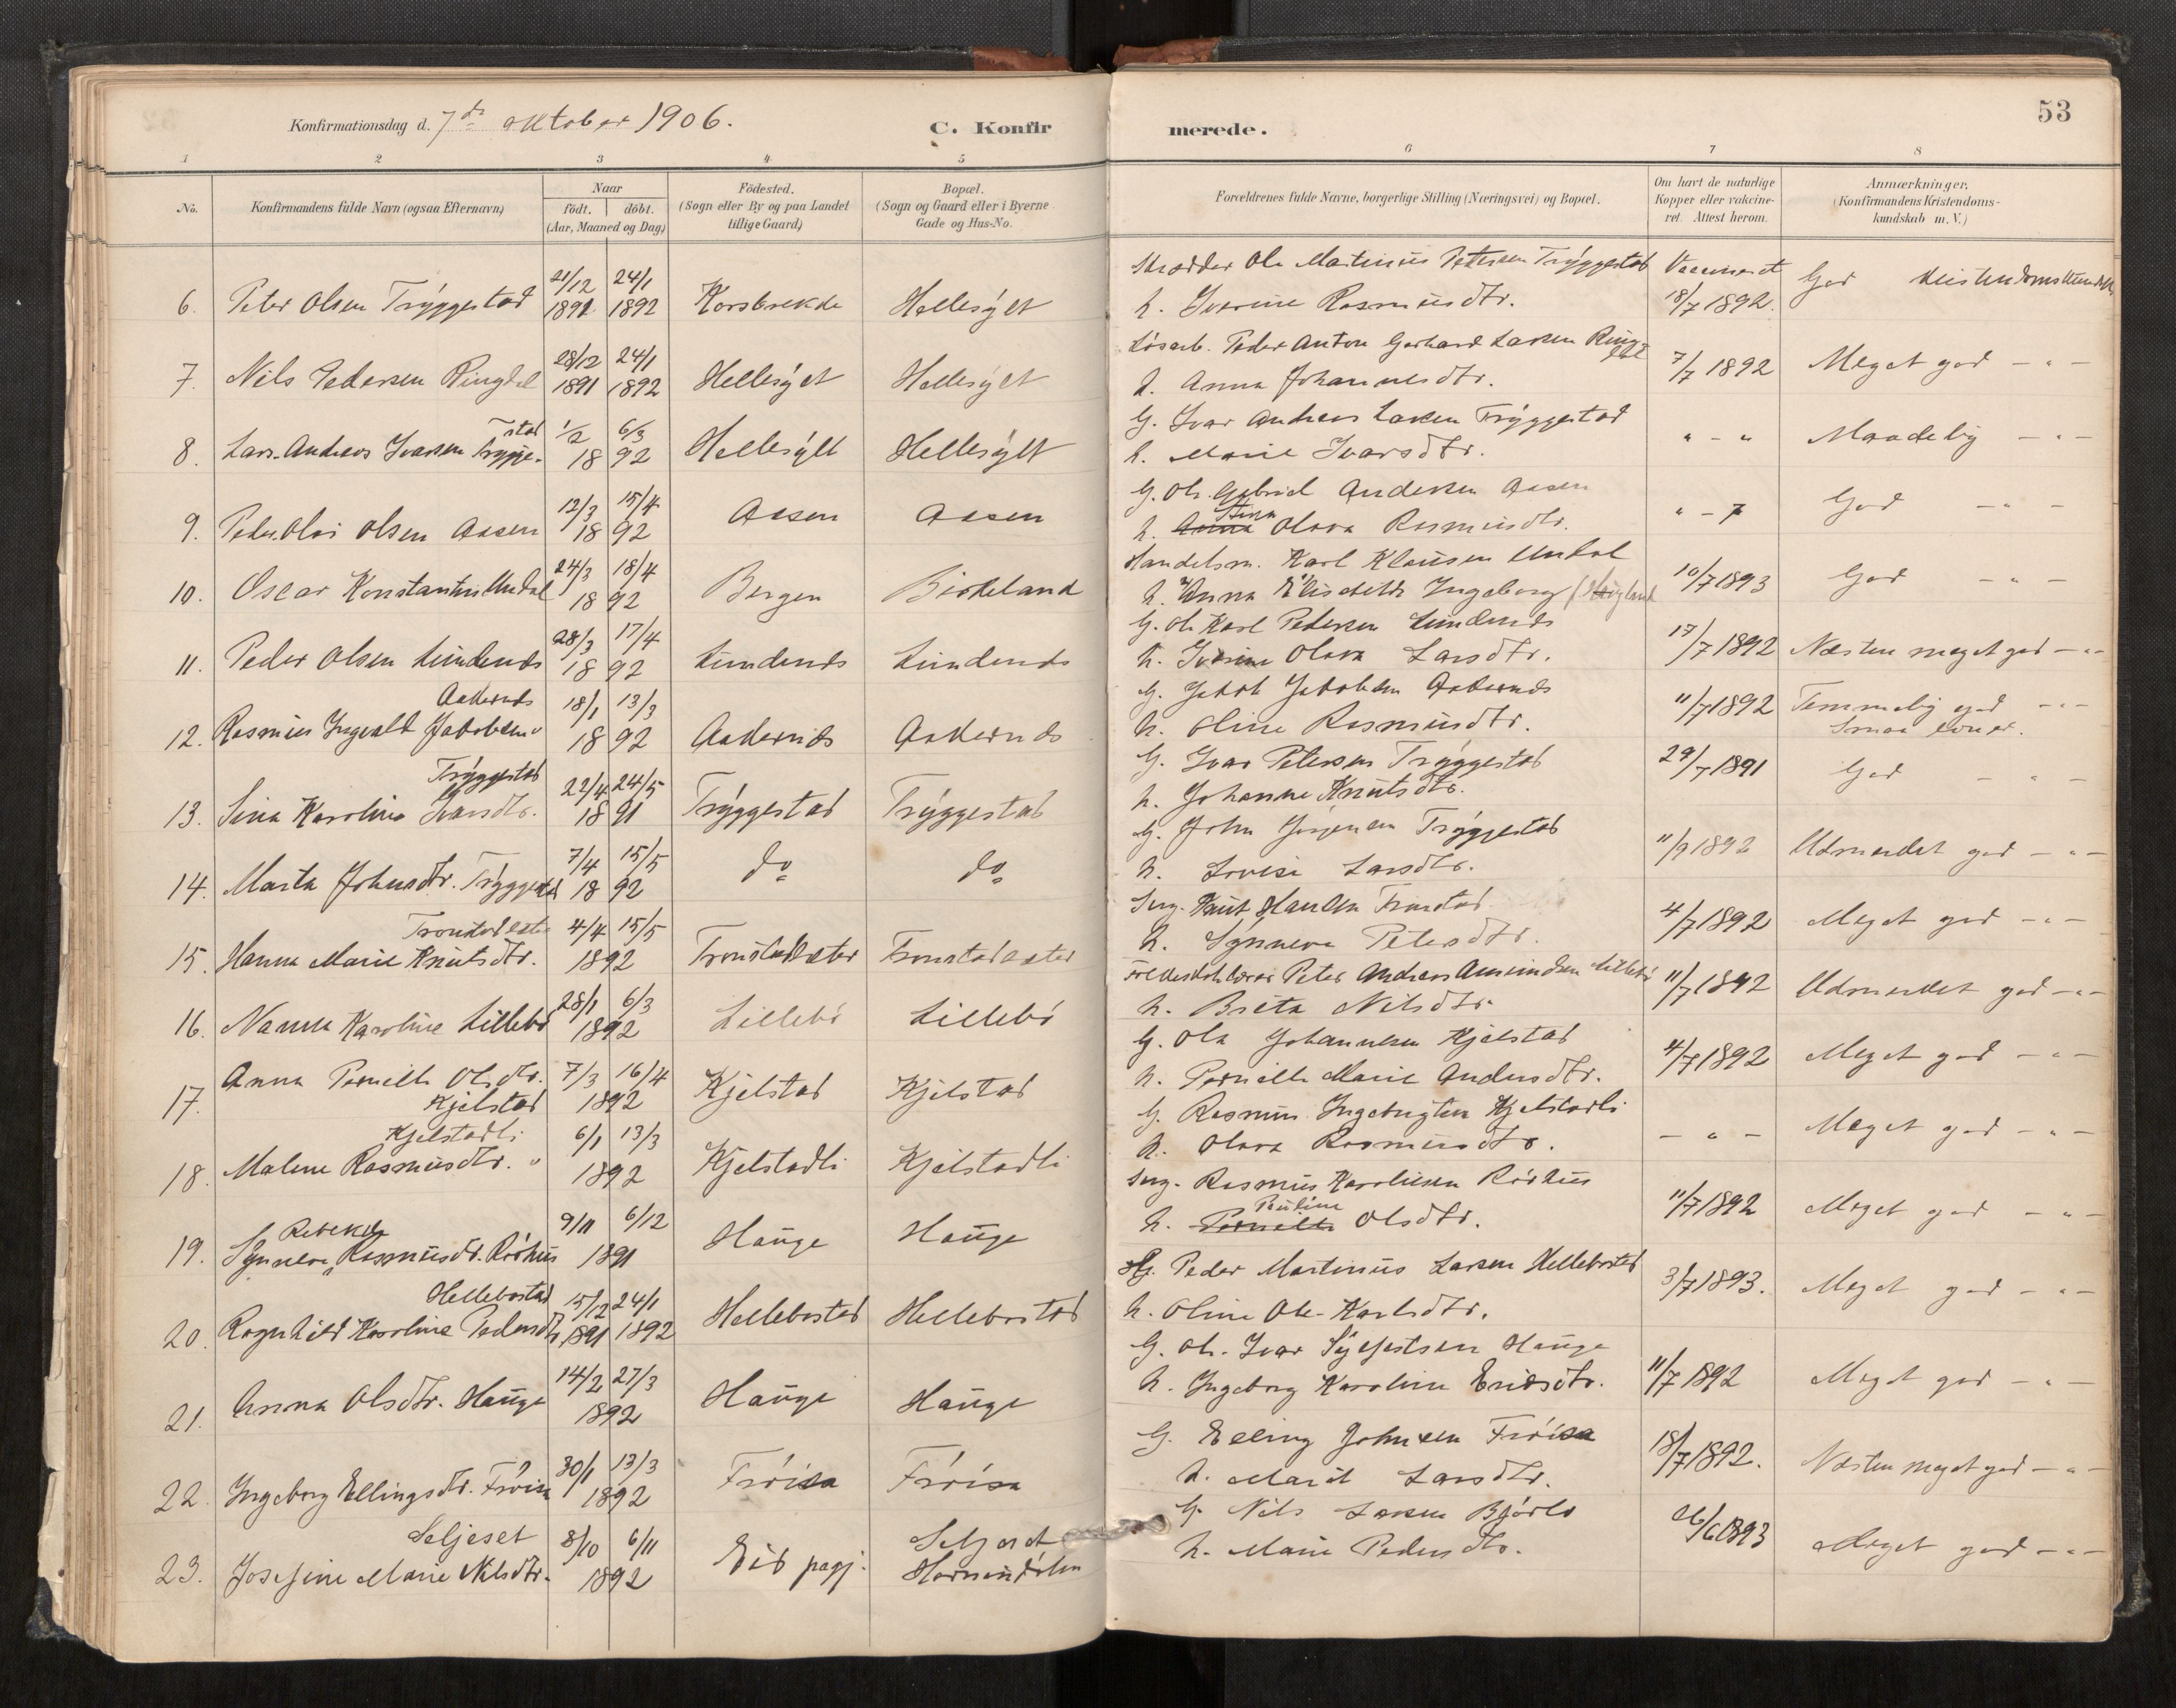 Konfirmationsdag d. 7de oktober 1906.
C. Konfir
merede.
53
1 2 3 4 5 6 7 8
No.
Konfirmandens fulde Navn (ogsaa Efternavn)
Naar
födt. döbt.
(Aar, Maaned og Dag)
Födested.
(Sogn eller By og paa Landet
tillige Gaard)
Bopæl.
(Sogn og Gaard eller i Byerne
Gade og Hus-No.
Forældrenes fulde Navne, borgerlige Stilling (Næringsvei) og Bopæl.
Om havt de naturlige
Kopper eller vakcine-
ret. Attest herom.
Anmærkninger.
(Konfirmandens Kristendoms-
kundskab m. V.)
21/12 24/1
6. Peter Olsen Tryggestad 1891 1892 Korsbrekke Hellesylt
Skrædder Ole Martinus Petersen Tryggestad Vaccineret God Kristendomskundsk
h. Ivarine Rasmusdtr. 18/7 1892.
28/12 24/1
7. Nils Pedersen Ringdal 1891 1892 Hellesylt Hellesylt
Løsarb. Peder Anton Gerhard Larsen Ring-
dal 7/7 1892 Meget god - " -
h. Anna Johannesdtr.
stad 1/2 6/3
8. Lars Andreas Ivarsen Trygge- 18 92 Hellesylt Hellesylt
G. Ivar Andreas Larsen Tryggestad " - " Maadelig - " -
h. Marie Ivarsdtr.
12/3 15/4
9. Peder Olai Olsen Aasen 18 92 Aasen Aasen
G. Ole Gabriel Andersen Aasen " - " God - " -
Stina
h. Anna Olava Rasmusdtr.
24/3 18/4
10. Oscar Konstantin Undal 18 92 Bergen Birkeland
Handelsm. Karl Klausen Undal 10/7 1893 God - " -
h. Anna Elisabeth Ingeborg
28/3 17/4
11. Peder Olsen Lundenes 18 92 Lundenes Lundenes
G. Ole Karl Petersen Lundenes 17/7 1892 Næsten meget god - " -
h. Ivarine Olava Larsdtr.
Aakernes 18/1 13/3
12. Rasmus Ingvald Jakobsen 18 92 Aakernes Aakernes
G. Jakob Jakobsen Aakernes 11/7 1892 Temmelig god - " -
h. Oline Rasmusdtr. Smaa evner.
Tryggestad 22/4 24/5
13. Sina Karoline Ivarsdtr. 18 91 Tryggestad Tryggestad
G. Ivar Petersen Tryggestad 29/7 1891 God - " -
h. Johanne Knutsdtr.
7/4 15/5
14. Marta Johnsdtr. Tryggestad 18 92 do do
G. John Jørgensen Tryggestad 11/7 1892 Udmerket god - " -
h. Lovise Larsdtr.
Tronstadsæter 4/4 15/5
15. Hanna Marie Knutsdtr. 1892 Tronstadsæter Tronstadsæter
Inng. Knut Hansen Tronstad 4/7 1892 Meget god - " -
h. Synneva Petersdtr.
28/1 6/3
16. Nanna Karoline Lillebø 1892 Lillebø Lillebø
Folkeskolelærer Peter Andreas Amundsen Lillebø 11/7 1892 Udmerket god - " -
h. Brita Nilsdtr.
17. Anna Pernille Olsdtr. 7/3 16/4
Kjelstad 1892 Kjelstad Kjelstad
G. Ola Johannesen Kjelstad 4/7 1892 Meget god - " -
h. Pernille Marie Andersdtr.
Kjelstadli 6/1 13/3
18. Malene Rasmusdtr. " 1892 Kjelstadli Kjelstadli
G. Rasmus Ingebrigtsen Kjelstadli - " - Meget god - " -
h. Olava Rasmusdtr.
Rebekka 9/11 6/12
19. Synneva Rasmusdtr. Rørhus 1891 Hauge Hauge
Inng. Rasmus Karolusen Rørhus 11/7 1892 Meget god - " -
Pauline
h. Pernille Olsdtr.
Hellebostad 15/12 24/1
20. Ragnhild Karoline Pedersdtr. 1891 1892 Hellebostad Hellebostad
G. Peder Martinus Larsen Hellebostad 3/7 1893. Meget god - " -
h. Oline Ole-Karlsdtr.
14/2 27/3
21. Anna Olsdtr. Hauge 1892 Hauge Hauge
G. Ole Ivar Syvertsen Hauge 11/7 1892 Meget god - " -
h. Ingeborg Karoline Eriksdtr.
30/1 13/3
22. Ingeborg Ellingsdtr. Frøisa 1892 Frøisa Frøisa
G. Elling Johnsen Frøisa 18/7 1892. Næsten meget god - " -
h. Marit Larsdtr.
Seljeset 8/10 6/11
23. Josefine Marie Nilsdtr. 1892 Eid pgj. Seljeset
Hornindalen
G. Nils Larsen Bjørlo 26/6 1893 Meget god - " -
h. Marie Pedersdtr.